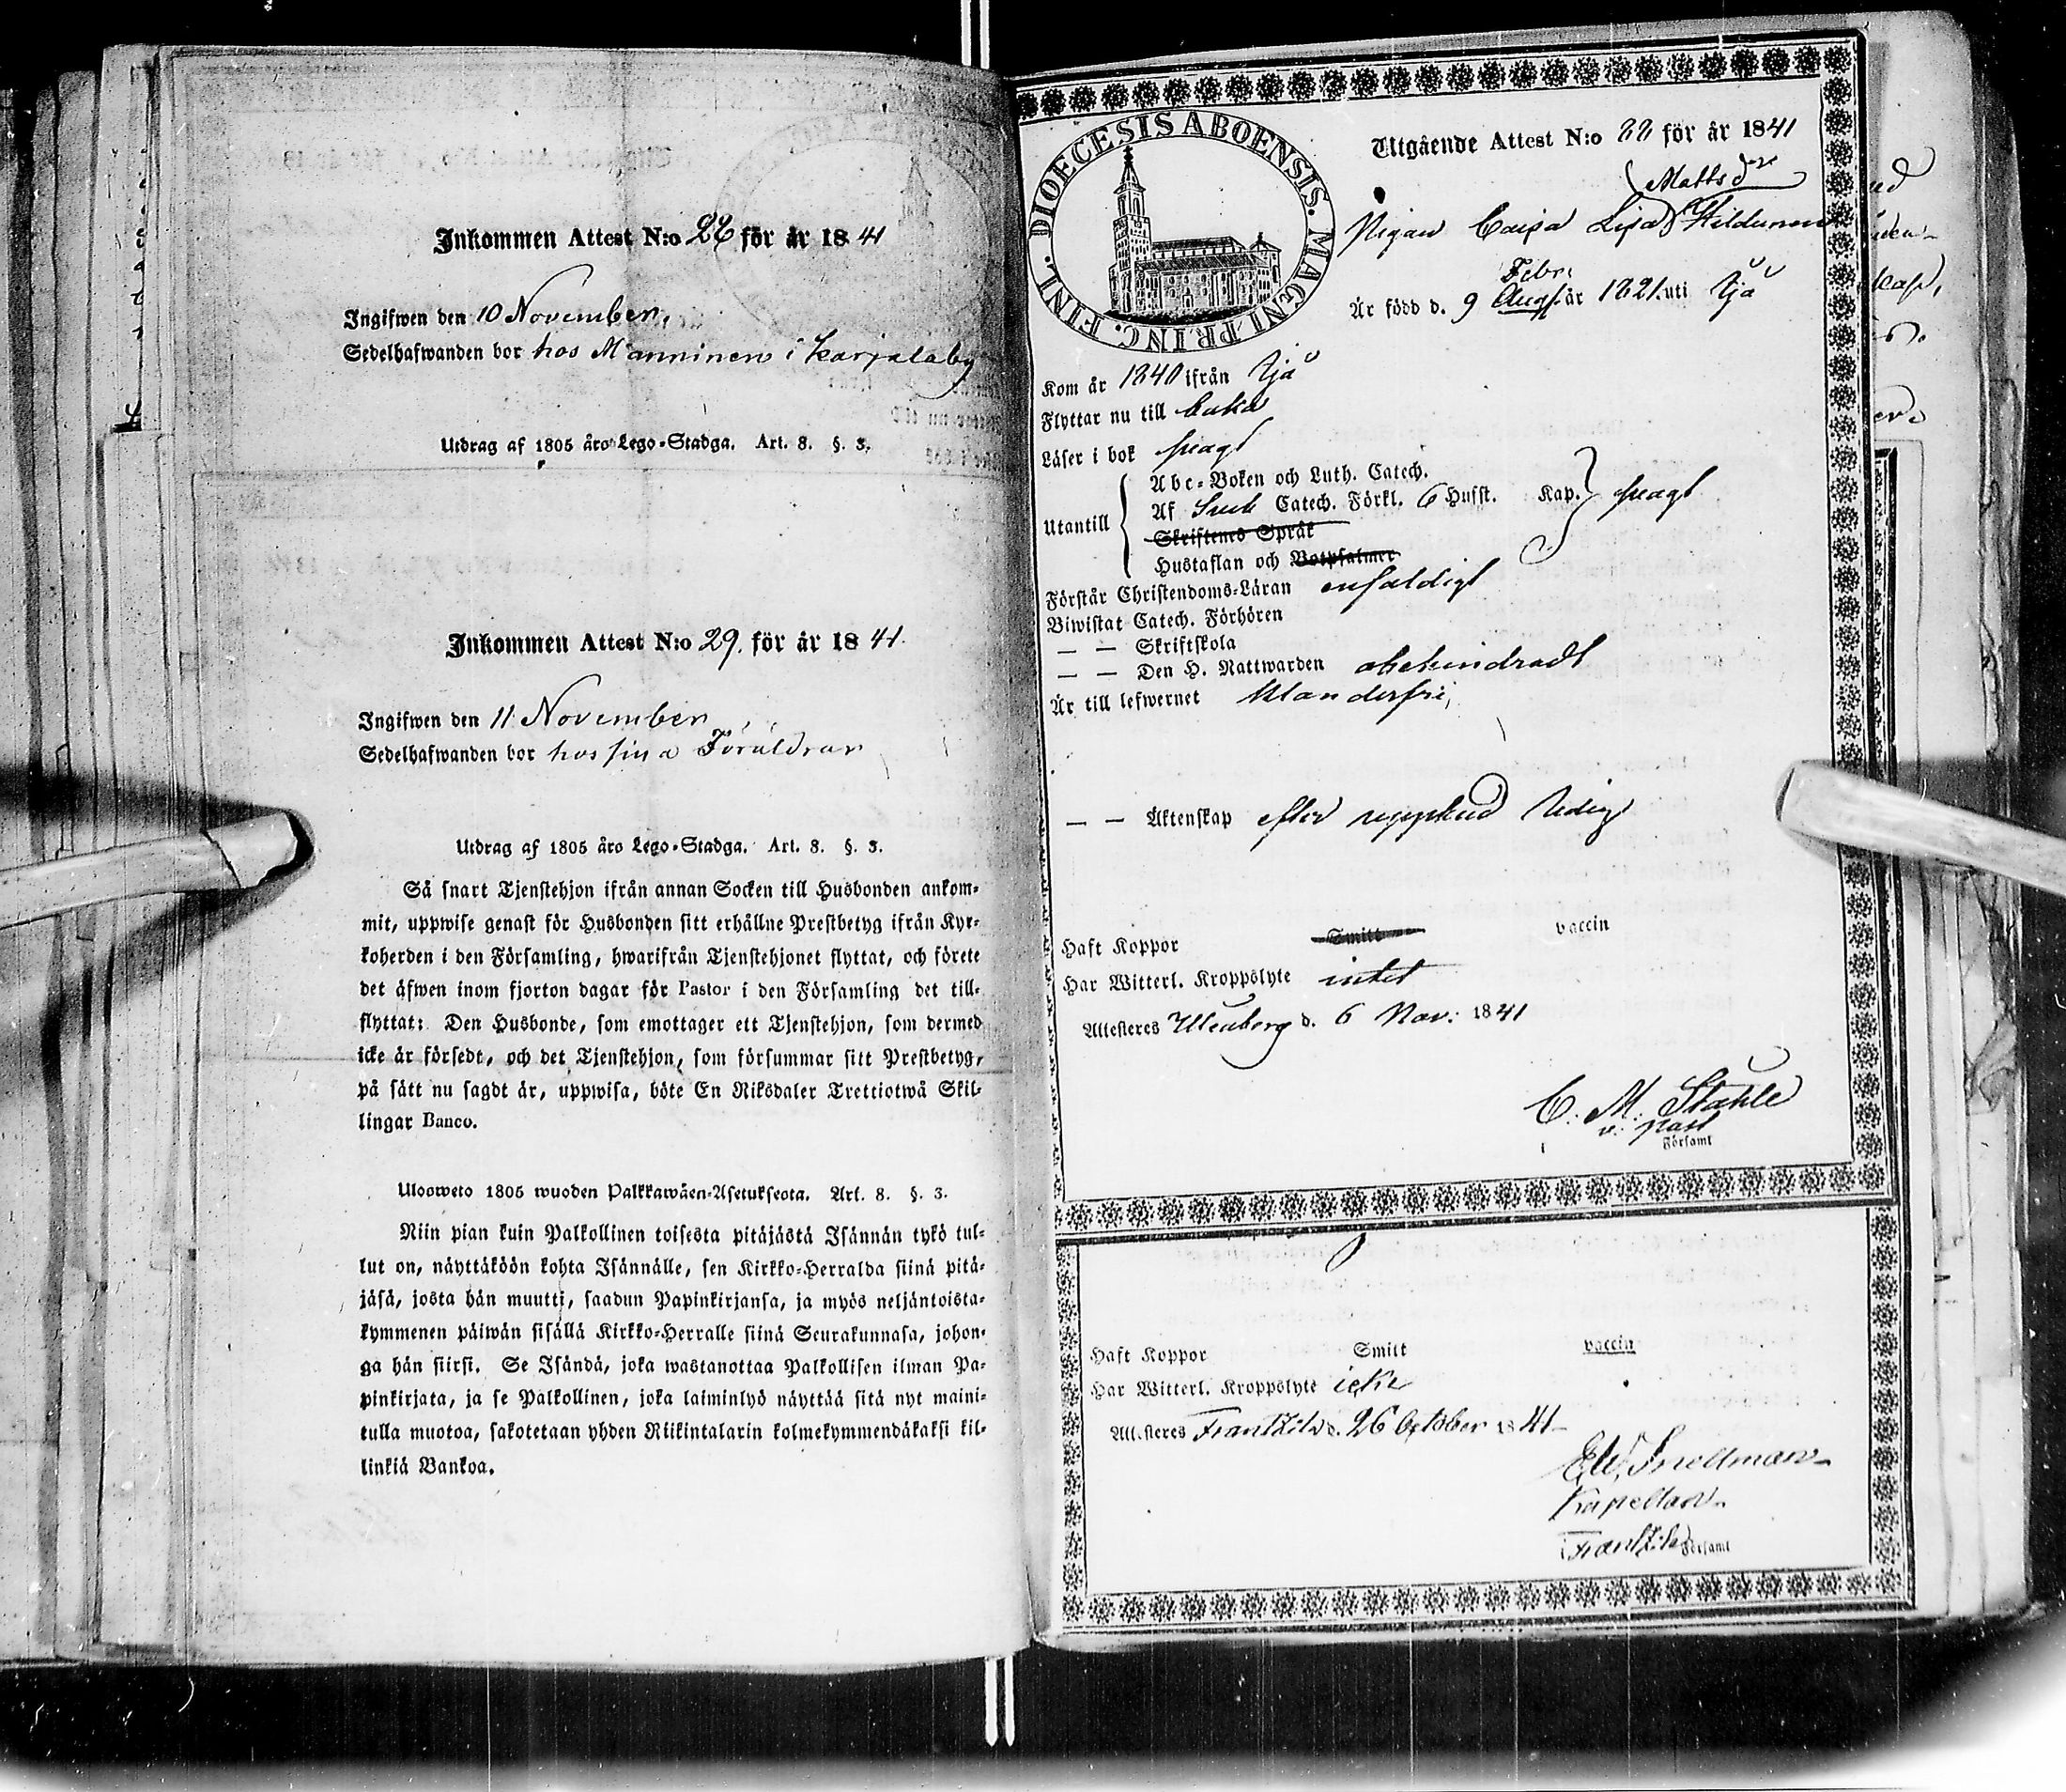 Inkommen Attest N:o 28 för år 1841
Ingifwen den 10 November,
Sedelhafwanden bor hos Manninen i Karjalaby
Utdrag af 1805 års Lego-Stadga. Art. 8. §. 3.
Inkommen Attest N:o 29. för år 1841.
Ingifwen den 11 November
Sedelhafwanden bor hos sina Föräldrar
Utdrag af 1805 års Lego-Stadga. Art. 8. §. 3.
Så snart Tjenstehjon ifrån annan Socken till Husbonden ankom-
mit, uppwise genast för Husbonden sitt erhållne Prestbetyg ifrån Kyr-
koherden i den Församling, hwarifrån Tjenstehjonet flyttat, och förete
det äfwen inom fjorton dagar för Pastor i den Församling det till-
flyttat: Den Husbonde, som emottager ett Tjenstehjon, som dermed
icke är försedt, och det Tjenstehjon, som försummar sitt Prestbetyg,
på sätt nu sagdt är, uppwisa, böte En Riksdaler Trettiotwå Skil-
lingar Banco.
Ulosweto 1805 wuoden Palkkawäen-Asetuksesta. Art. 8. §. 3.
Niin pian kuin Palkollinen toisesta pitäjästä Isännän tykö tul-
lut on, näyttäköön kohta Isännälle, sen Kirkko-Herralda siinä pitä-
jäsä, josta hän muutti, saadun Papinkirjansa, ja myös neljäntoista-
kymmenen päiwän sisällä Kirkko-Herralle siinä Seurakunnasa, johon-
ga hän siirsi. Se Isändä, joka wastanottaa Palkollisen ilman Pa-
pinkirjata, ja se Palkollinen, joka laiminlyö näyttää sitä nyt maini-
tulla muotoa, sakotetaan yhden Riikintalarin kolmekymmendäkaksi kil-
linkiä Bankoa.
DIOECESIS ABOENSIS. MAGNI PRINC. FINL.
Utgående Attest N:o 22 för år 1841
Mattsdr
Pigan Caisa Lisa Hildunen
Febr:
Är född d. 9 Aug. år 1821. uti Ijå
Kom år 1840 ifrån Ijå
Flyttar nu till
Läser i bok swagt
Abc-Boken och Luth. Catech.
Utantill Af Sweb Catech. Förkl. 6 Hufst. Kap. swagt
Skriftenes Språk
Hustaflan och Botpsalmer
Förstår Christendoms-Läran enfaldigt
Biwistat Catech. Förhören
— — Skriftskola
— — Den H. Nattwarden obehindradt
Är till lefwernet klanderfri,
— — Äktenskap efter uppbud ledig
Haft Koppor Smitt vaccin
Har Witterl. Kroppslyte intet
Attesteres Uleåborg d. 6 Nov: 1841
C. M. Ståhle
v. past
Församl
Haft Koppor Smitt vaccin
Har Witterl. Kroppslyte icke
Attesteres Frantzila d. 26 October 1841
Snellman
Kapellan
Frantzila Församl